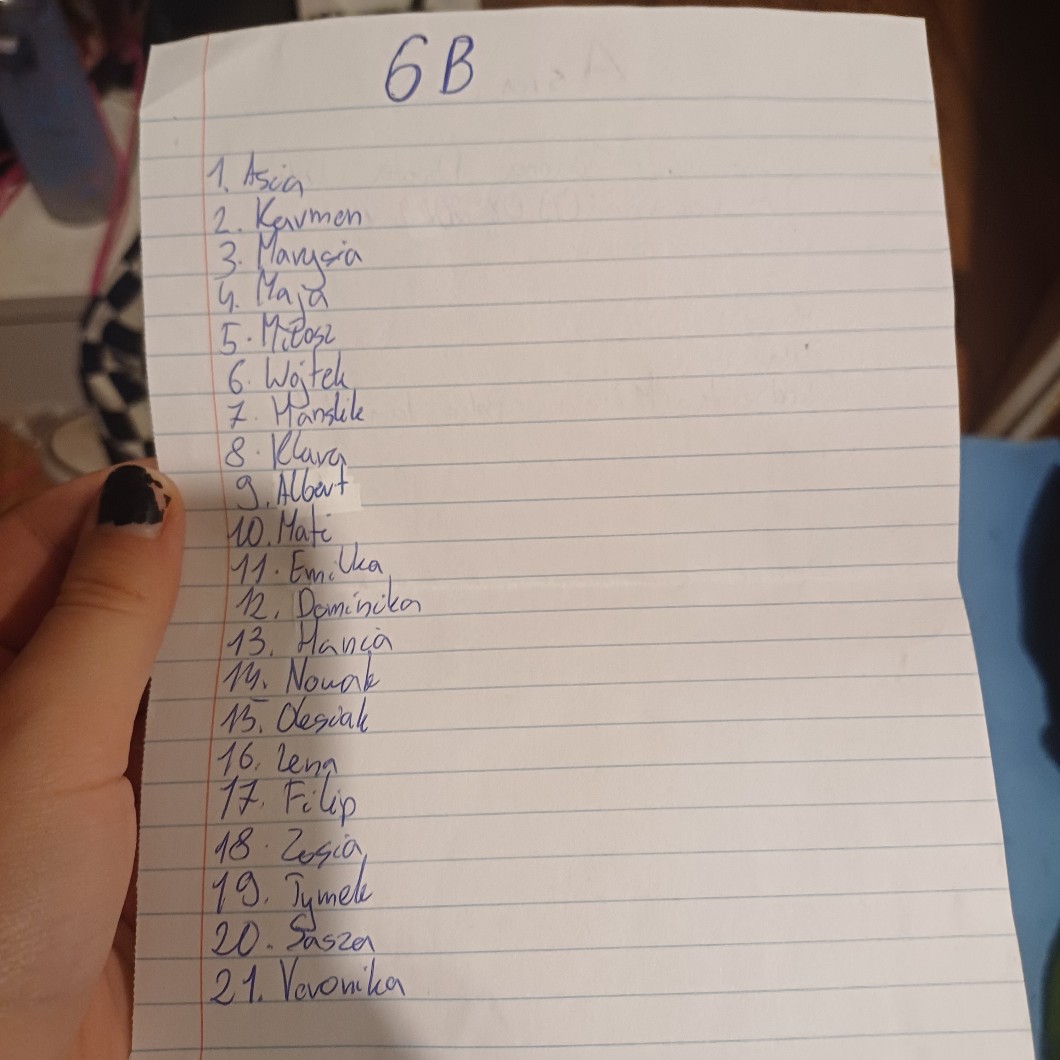 6B
1. Asia
2. Karmen
3. Marysia
4. Maja
5. Miłosz
6. Wojtek
7.
8. Klara
9. Albert
10. Mati
11. Emilka
12. Dominika
13. Hania
14. Nowak
15. Olesiak
16. Lena
17. Filip
18. Zosia
19. Tymek
20. Sasza
21. Veronika